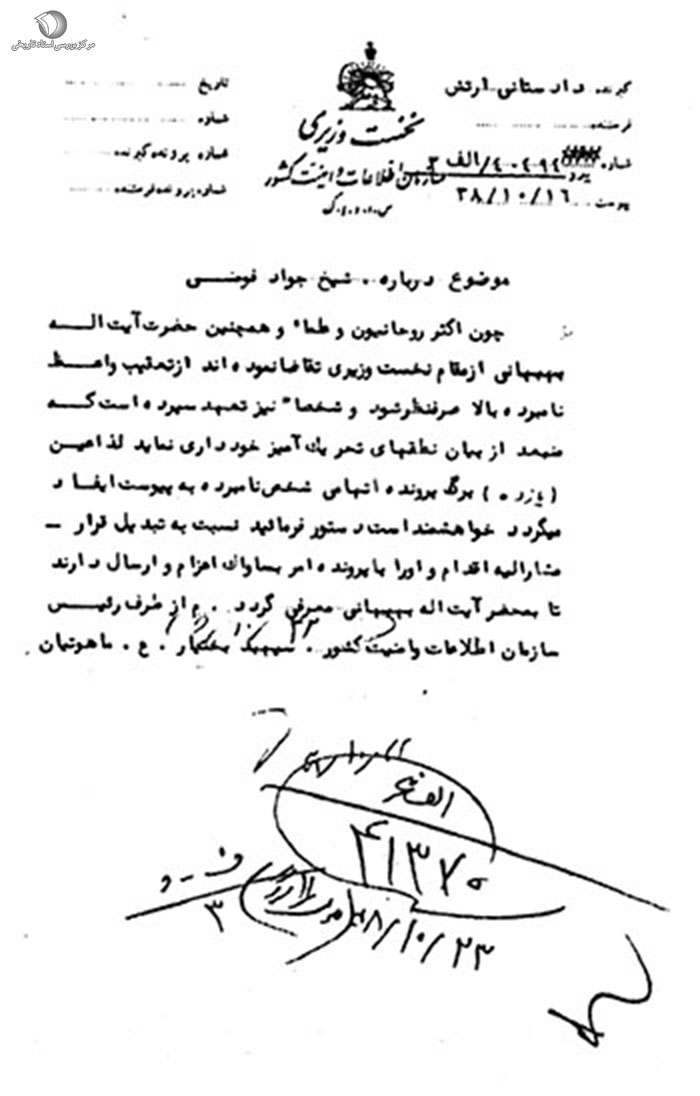 مرکز بررسی اسناد تاریخی
گیرنده دادستانی ارتش
فرستنده
شماره ۴۰۲۹۲/الف ۳
پیوست ۳۸/۱۰/۱۶
نخست وزیری
سازمان اطلاعات و امنیت کشور
س.ا.و.ا.ک
تاریخ
شماره
شماره پرونده گیرنده
شماره پرونده فرستنده
موضوع درباره . شیخ جواد فومنی
چون اکثر روحانیون و علماء و همچنین حضرت آیت اله
بهبهانی از مقام نخست وزیری تقاضا نموده اند از تعقیب واعظ
نامبرده بالا صرفنظر شود و شخصاً نیز تعهد سپرده است که
منبعد از بیان نطقهای تحریک آمیز خودداری نماید لذا عین
( یازده ) برگ پرونده اتهامی شخص نامبرده به پیوست ایفاد
میگردد خواهشمند است دستور فرمائید نسبت به تبدیل قرار –
مشارالیه اقدام و او را با پرونده امر بساواک اعزام و ارسال دارند
تا بمحضر آیت اله بهبهانی معرفی گردد . م از طرف رئیس
سازمان اطلاعات و امنیت کشور . سپهبد بختیار . ع . ماهوتیان
۳۸/۱۰/۲۲
۴۱۳۷۰
۳
۳۸/۱۰/۲۳